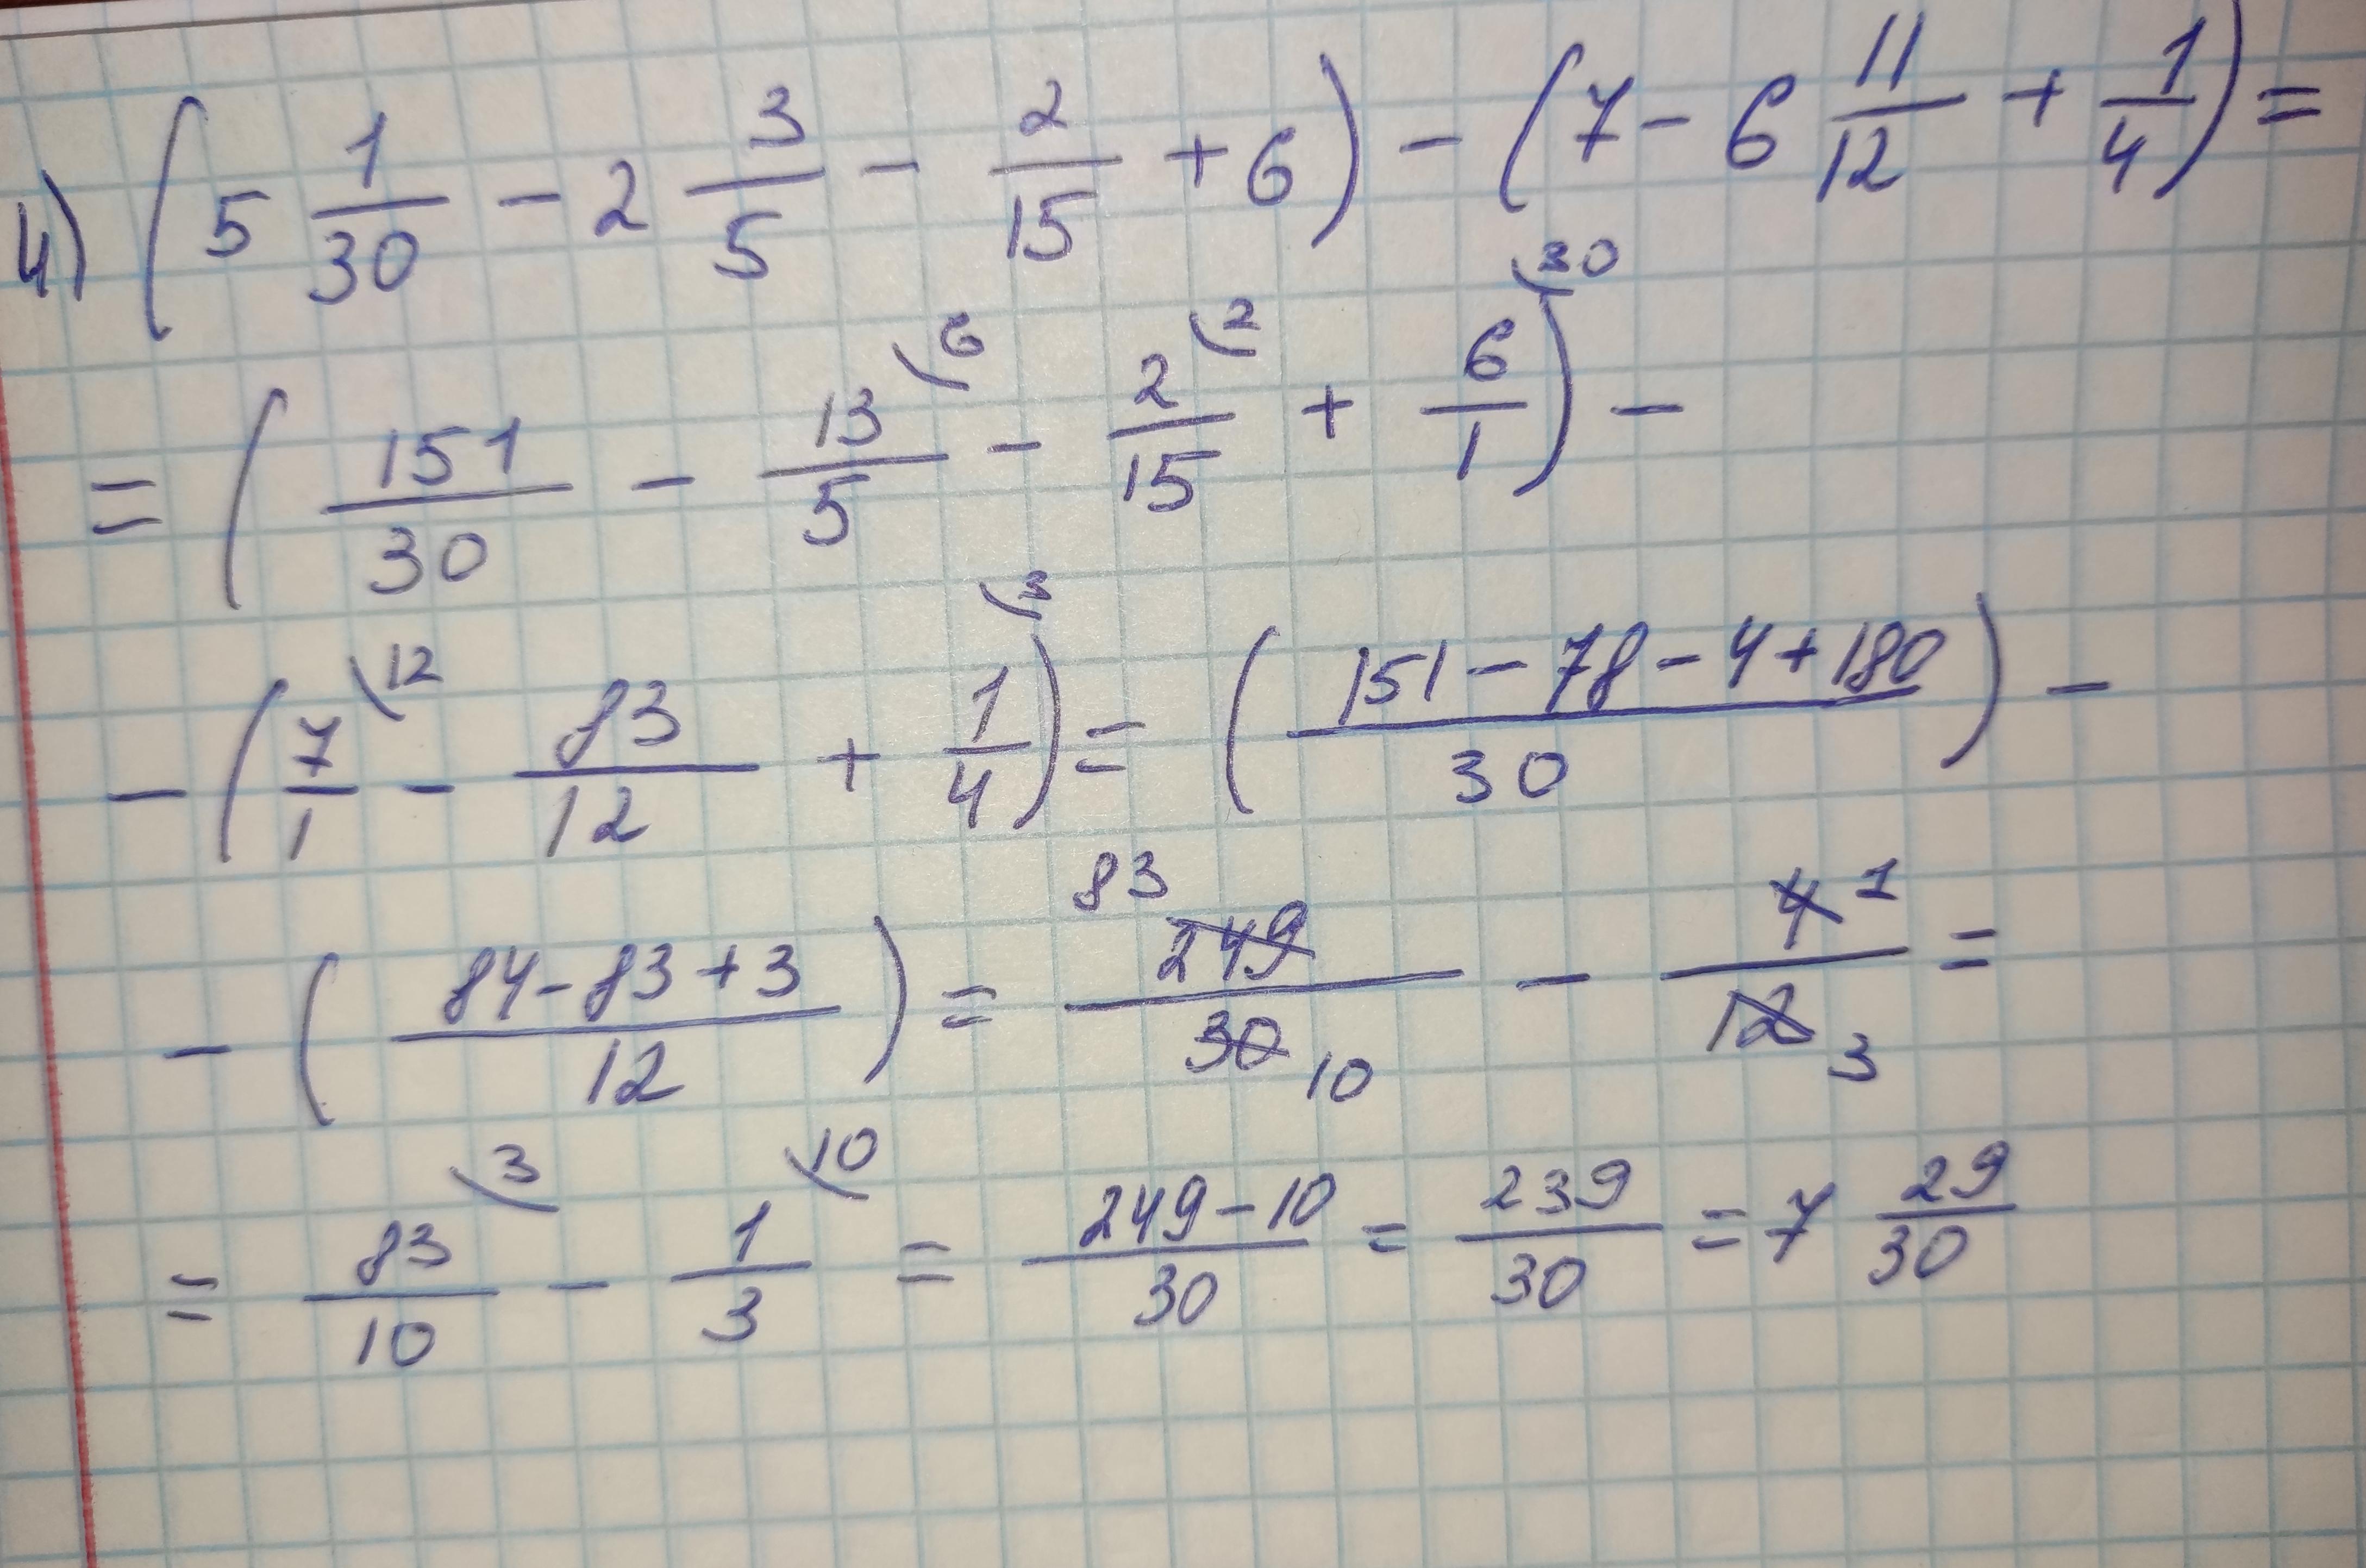 4) (5 1/30 - 2 3/5 - 2/15 + 6) - (7 - 6 11/12 + 1/4) =
= (151/30 - 13/5 \6 - 2/15 \2 + 6/1 \30) -
- (7/1 \12 - 83/12 + 1/4 \3) = ((151 - 78 - 4 + 180)/30) -
- ((84 - 83 + 3)/12) = 249/30 83/10 - 4/12 1/3 =
= 83/10 \3 - 1/3 \10 = (249 - 10)/30 = 239/30 = 7 29/30